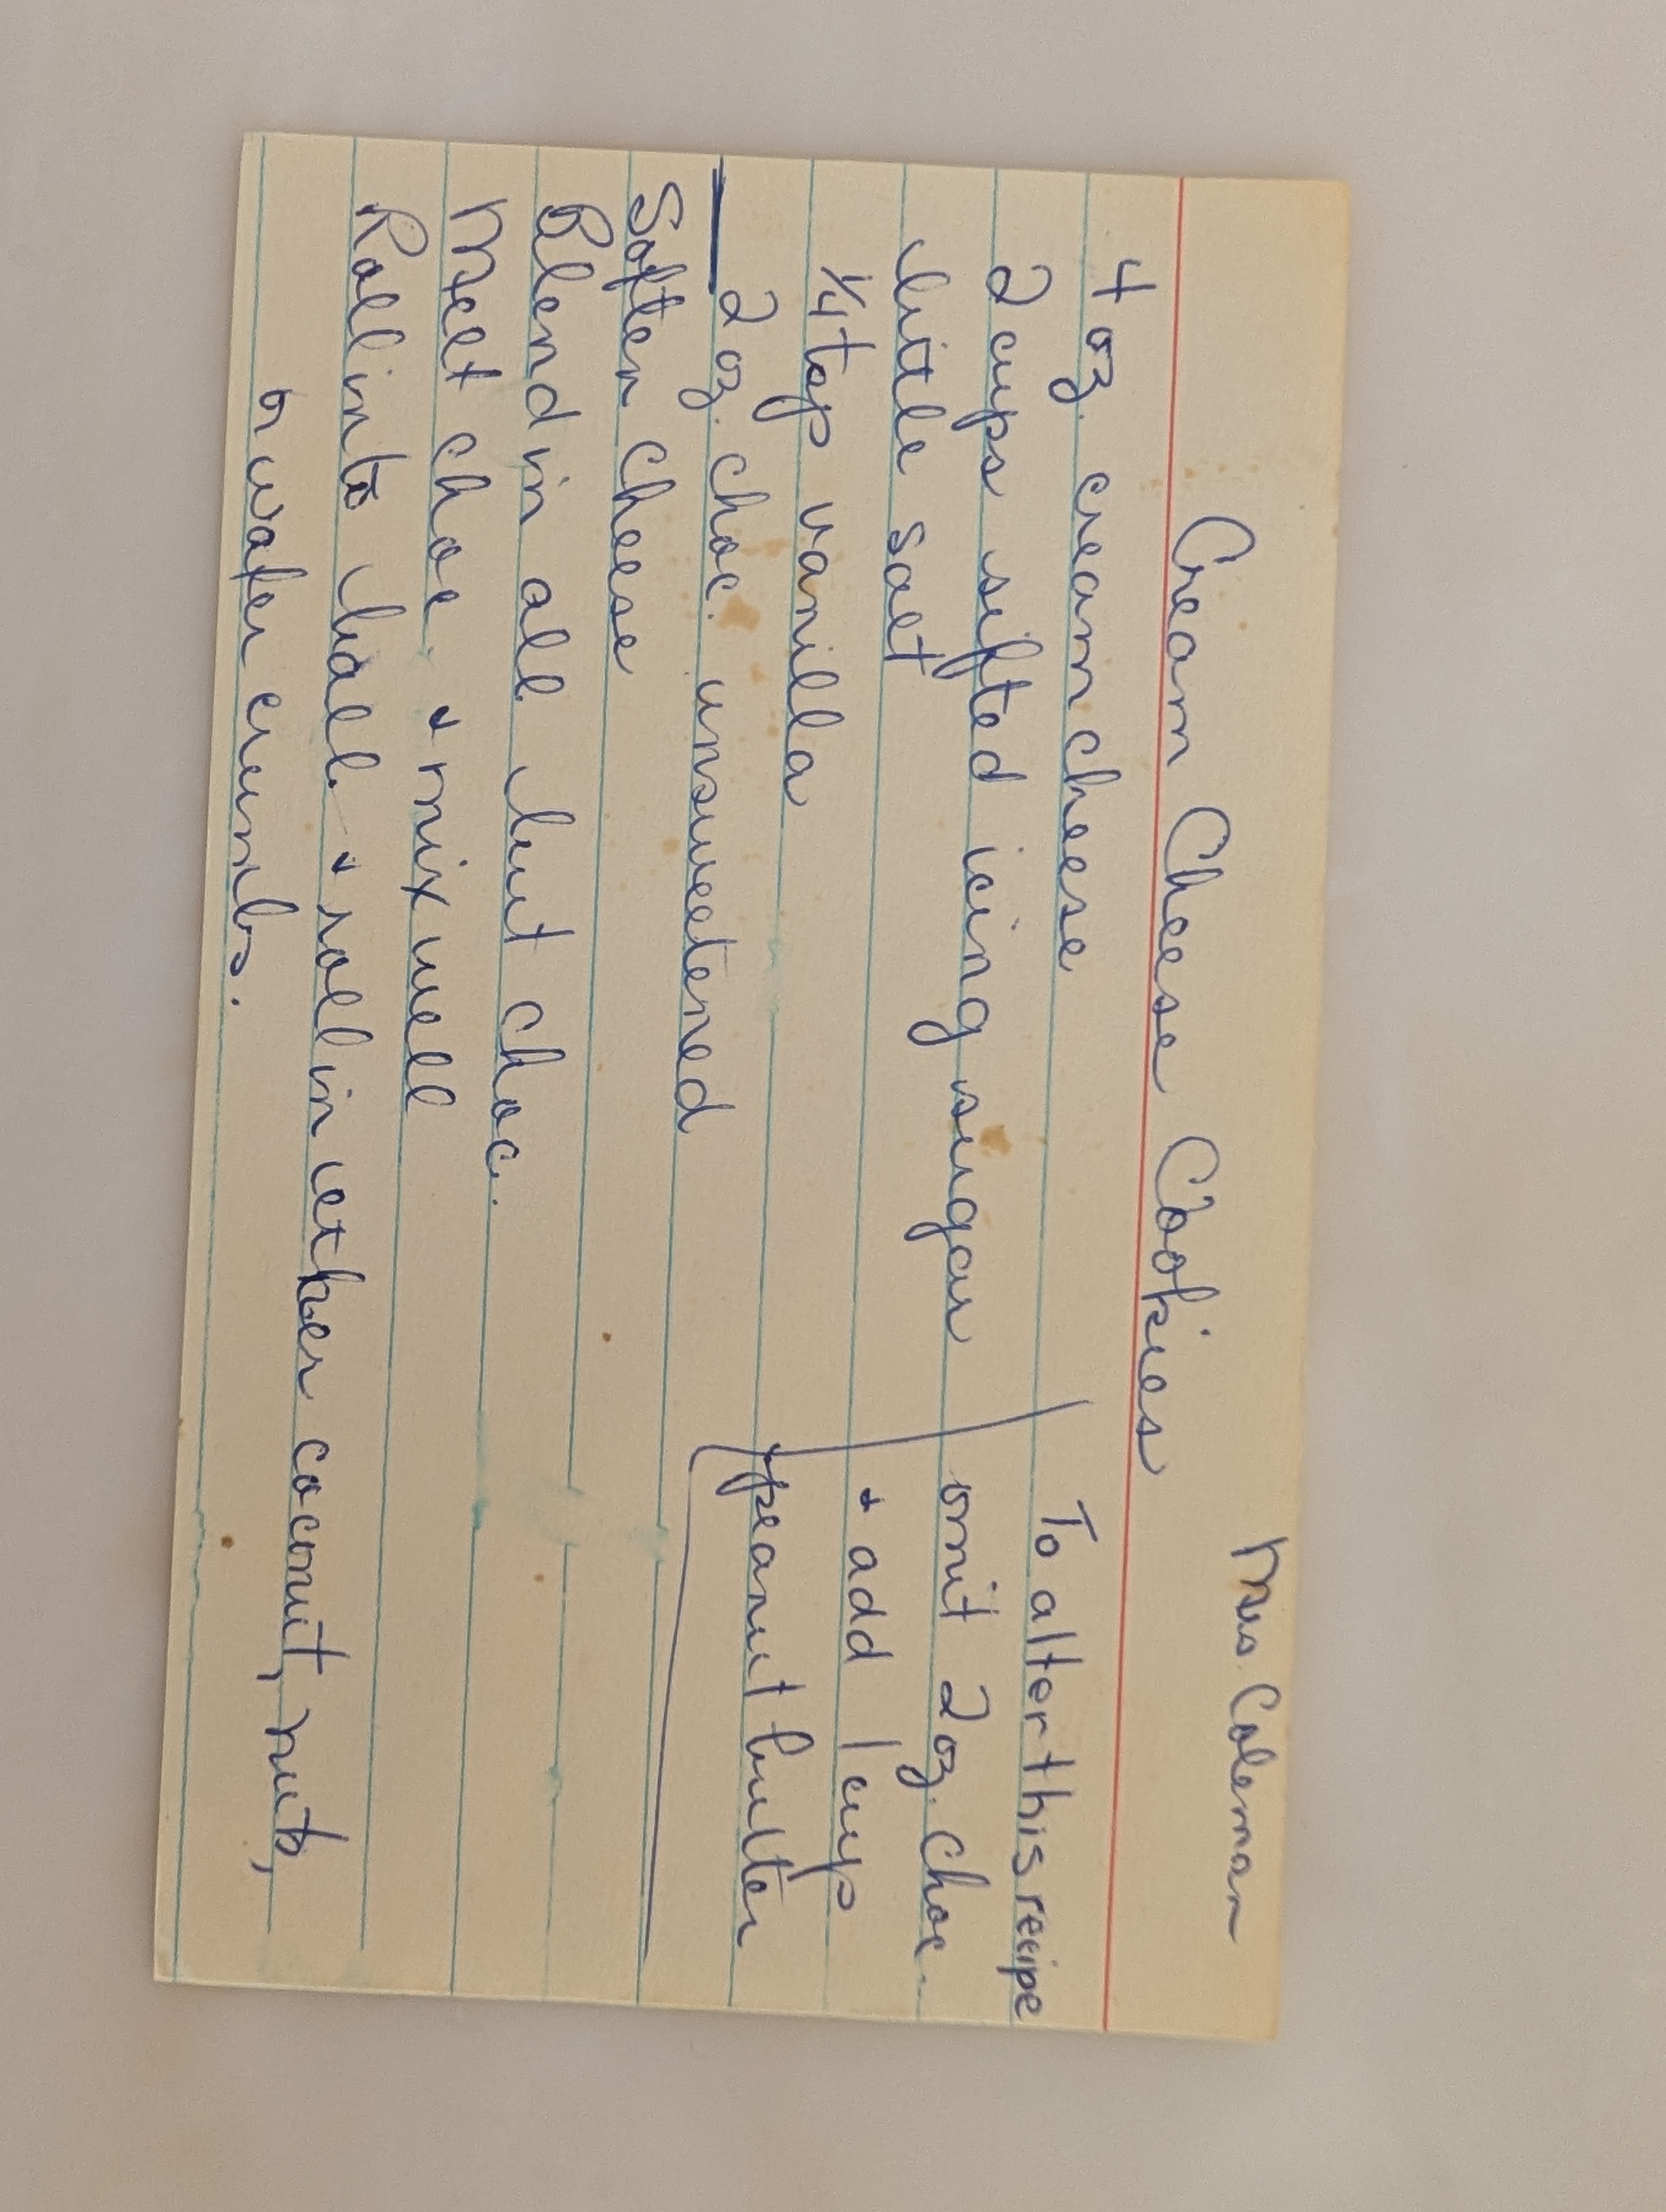 Mrs. Coleman
Cream Cheese Cookies
4 oz. cream cheese
2 cups sifted icing sugar
little salt
1/4 tsp vanilla
2 oz. choc. unsweetened
To alter this recipe
omit 2 oz. choc.
+ add 1 cup
peanut butter
Soften cheese
Blend in all but choc.
Melt choc. + mix well
Roll into ball + roll in either coconut, nuts,
or wafer crumbs.